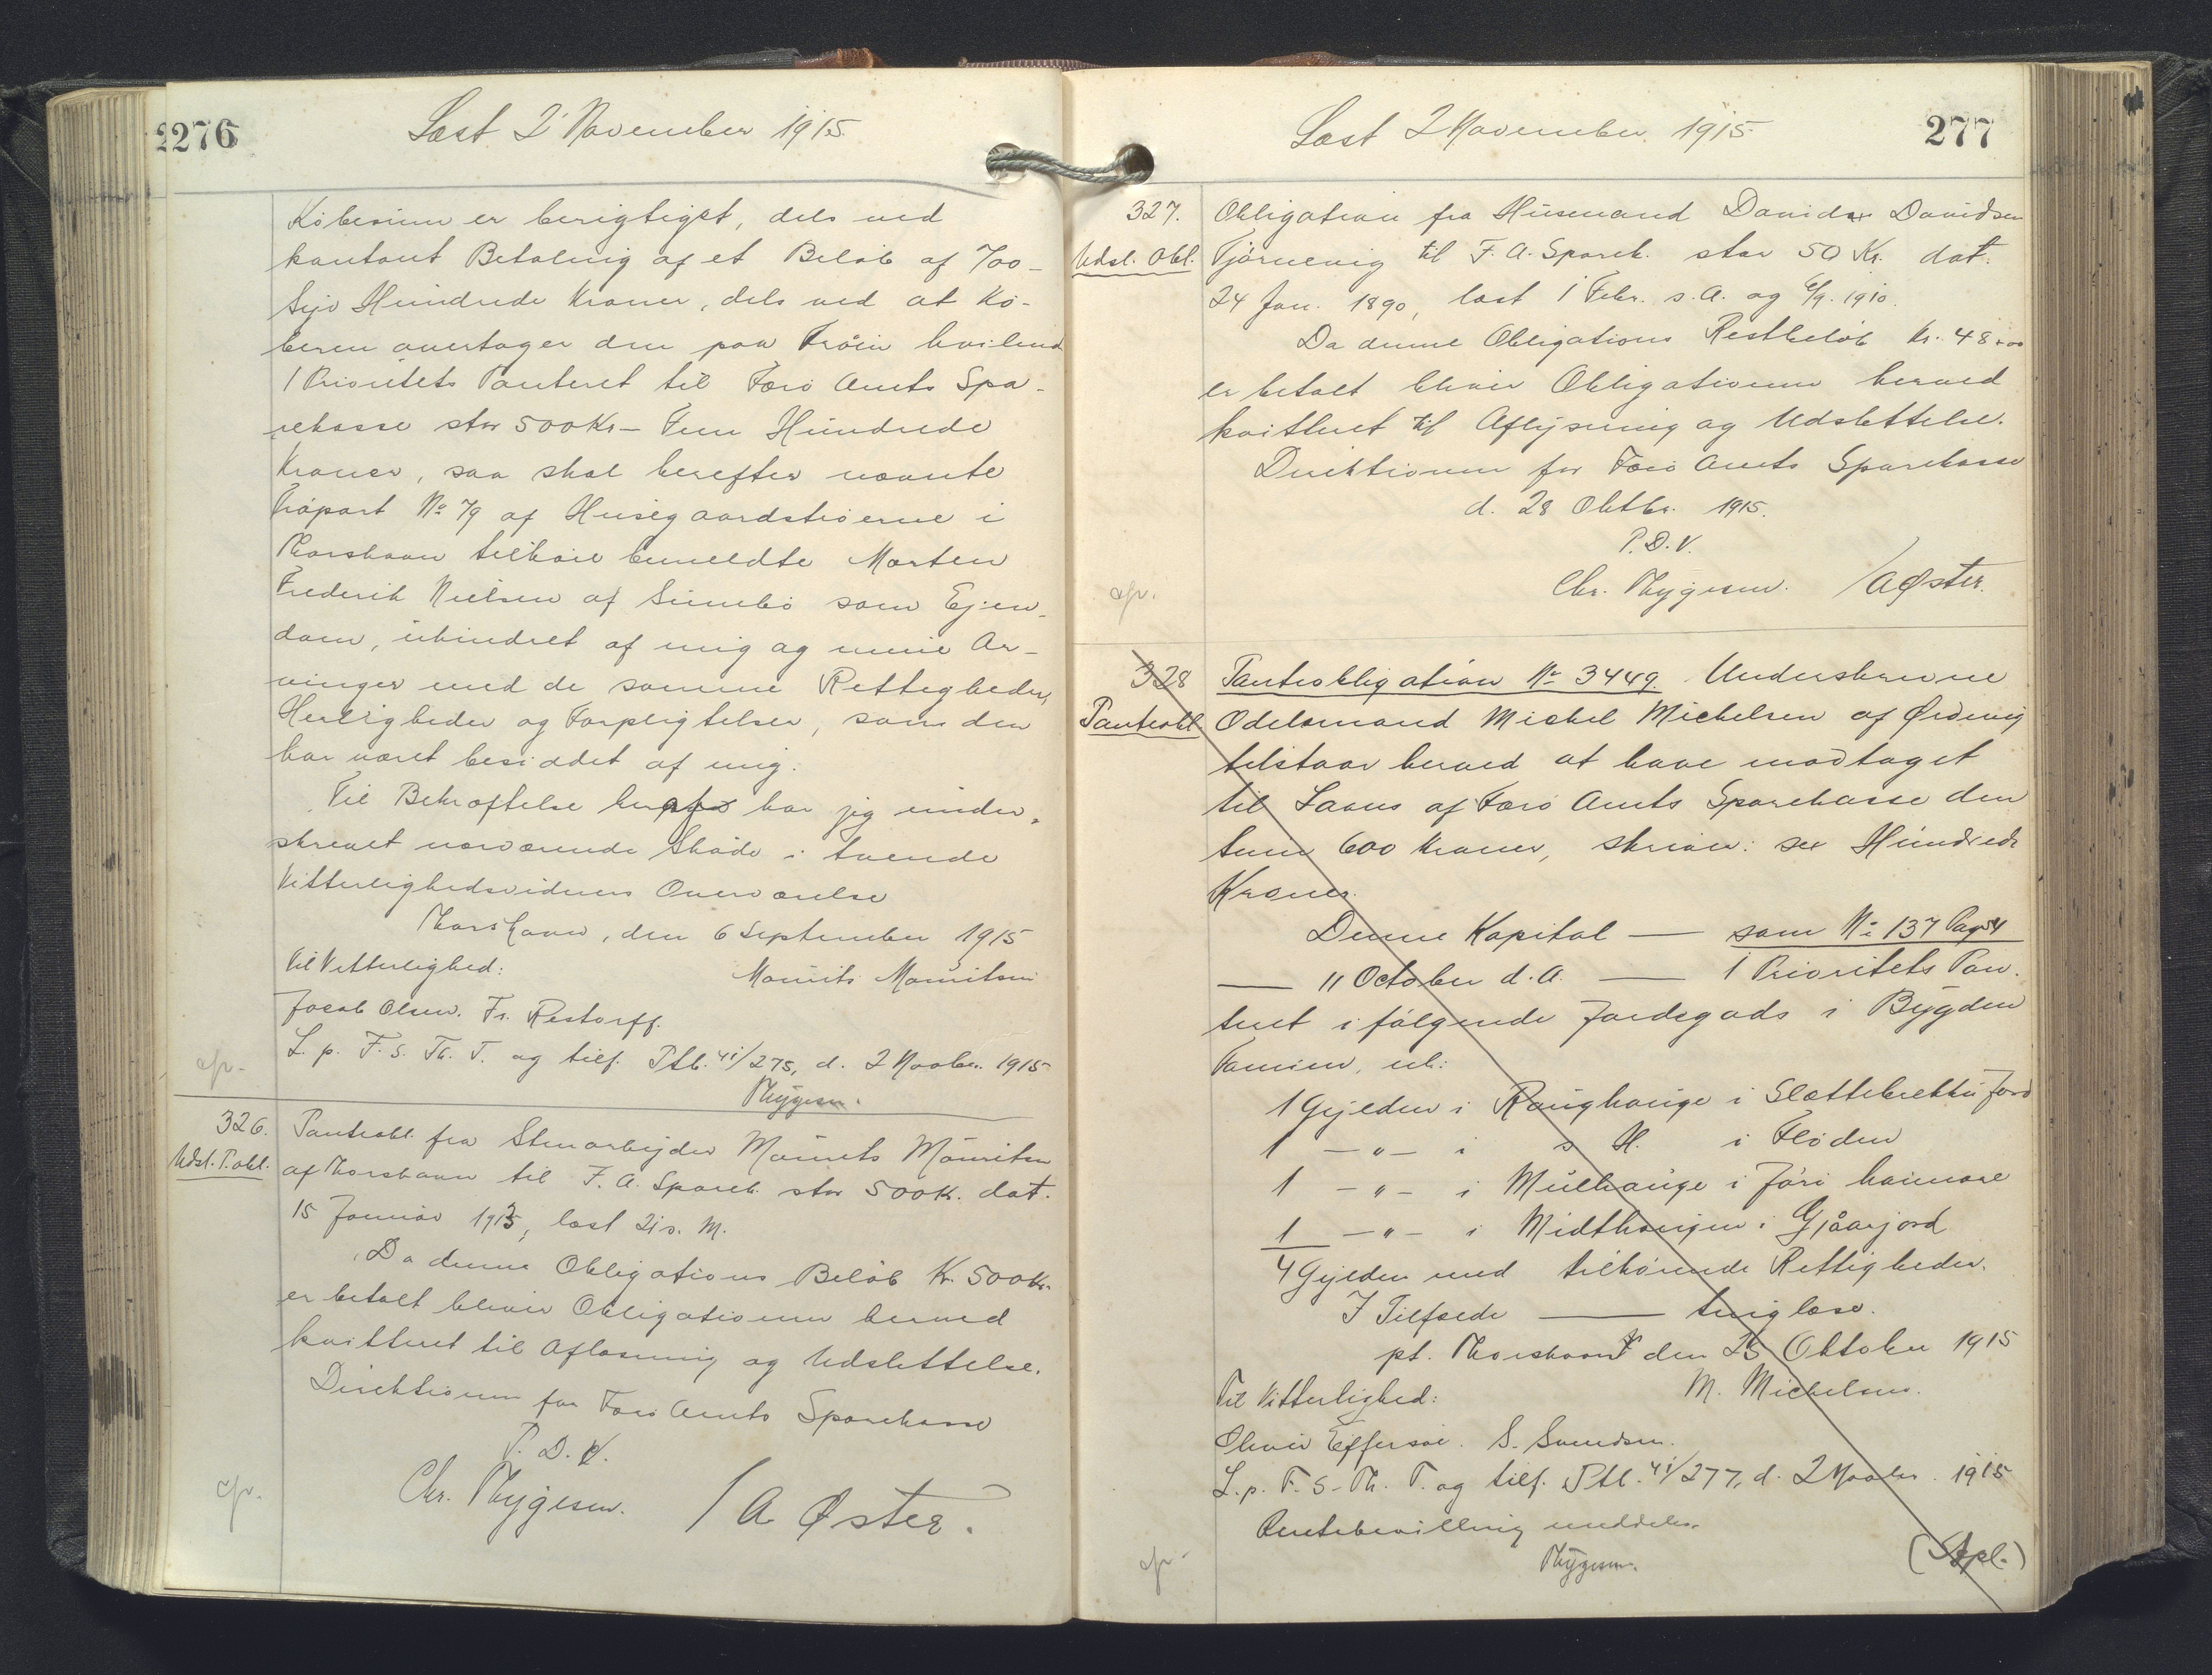 2276
Læst 2 November 1915.
Købesum er berigtiget, dels ved
kontant Betaling af et Beløb af 700 -
Syv Hundrede Kroner, dels ved at Kø-
beren overtager den paa Trøen hvilende
1 Prioritets Panteret til Færø Amts Spa-
rekasse stor 500 Kr - Fem Hundrede
Kroner, saa skal herefter nævnte
Trøpart No 79 af Husegaardstrøerne i
Thorshavn tilhøre bemeldte Morten
Frederik Nielsen af Sumbø som Ejen-
dom, uhindret af mig og mine Ar-
vinger med de samme Rettigheder,
Herligheder og Forpligtelser, som den
har været besiddet af mig.
Til Bekræftelse heraf har jeg under-
skrevet nærværende Skøde i tvende
Vitterlighedsvidners Overværelse
Thorshavn, den 6 September 1915
Til Vitterlighed: Mourits Mouritsen
Jacob Olsen. Fr. Restorff.
L. p. F. S. Th. T. og tilf. Ptb. 4i/275, d. 2 Novbr. 1915
Thygesen.
326. Panteobl. fra Stenarbejder Mourits Mouritsen
Udsl. P. obl. af Thorshavn til F. A. Sparek. stor 500 K. dat.
15 Januar 1913, læst 21 s. M.
Da denne Obligations Beløb Kr. 500 Kr.
er betalt bliver Obligationen herved
kvitteret til Aflæsning og Udslettelse.
Direktionen for Færø Amts Sparekasse
P. D. V.
Chr. Thygesen. / A Øster.
Læst 2 November 1915.
277
327. Obligation fra Husmand David Davidsen
Udsl. Obl. Tjørnevig til F. A. Sparek. stor 50 Kr. dat.
24 Jan. 1890, læst 1 Febr. s. A. og 6/9. 1910.
Da denne Obligations Restbeløb Kr. 48.00
er betalt bliver Obligationen herved
kvitteret til Aflysning og Udslettelse.
Direktionen for Færø Amts Sparekasse
d. 28 Oktbr. 1915.
P. D. V.
Chr. Thygesen. / A Øster.
328 Panteobligation No 3449. Underskrevne
Panteobl Odelsmand Mickel Mickelsen af Ørdevig
tilstaar herved at have modtaget
til Laans af Færø Amts Sparekasse den
Sum 600 Kroner, skriver: sex Hundrede
Kroner.
Denne Kapital — som No 137 Pag 54
— 11 October d. A. — 1 Prioritets Pan-
teret i følgende Jordegods i Bygden
Famien, nl:
1 Gylden i Roughauge i Slættebrekku Jord
1 - " - i s H. i Fløden
1 - " - i Mulhauge i Jøri haimare
1 - " - i Midthaugen i Gjåarjord
4 Gylden med tilhørende Rettigheder.
I Tilfælde — tinglæse.
pt. Thorshavn den 25 Oktober 1915
Til Vitterlighed: M. Mickelsen.
Oliver Effersøe. S. Svendsen.
L. p. F. S. Th. T. og tilf. Ptb. 4i/277, d. 2 Novbr. 1915
Rentebevilling meddeles.
Thygesen.